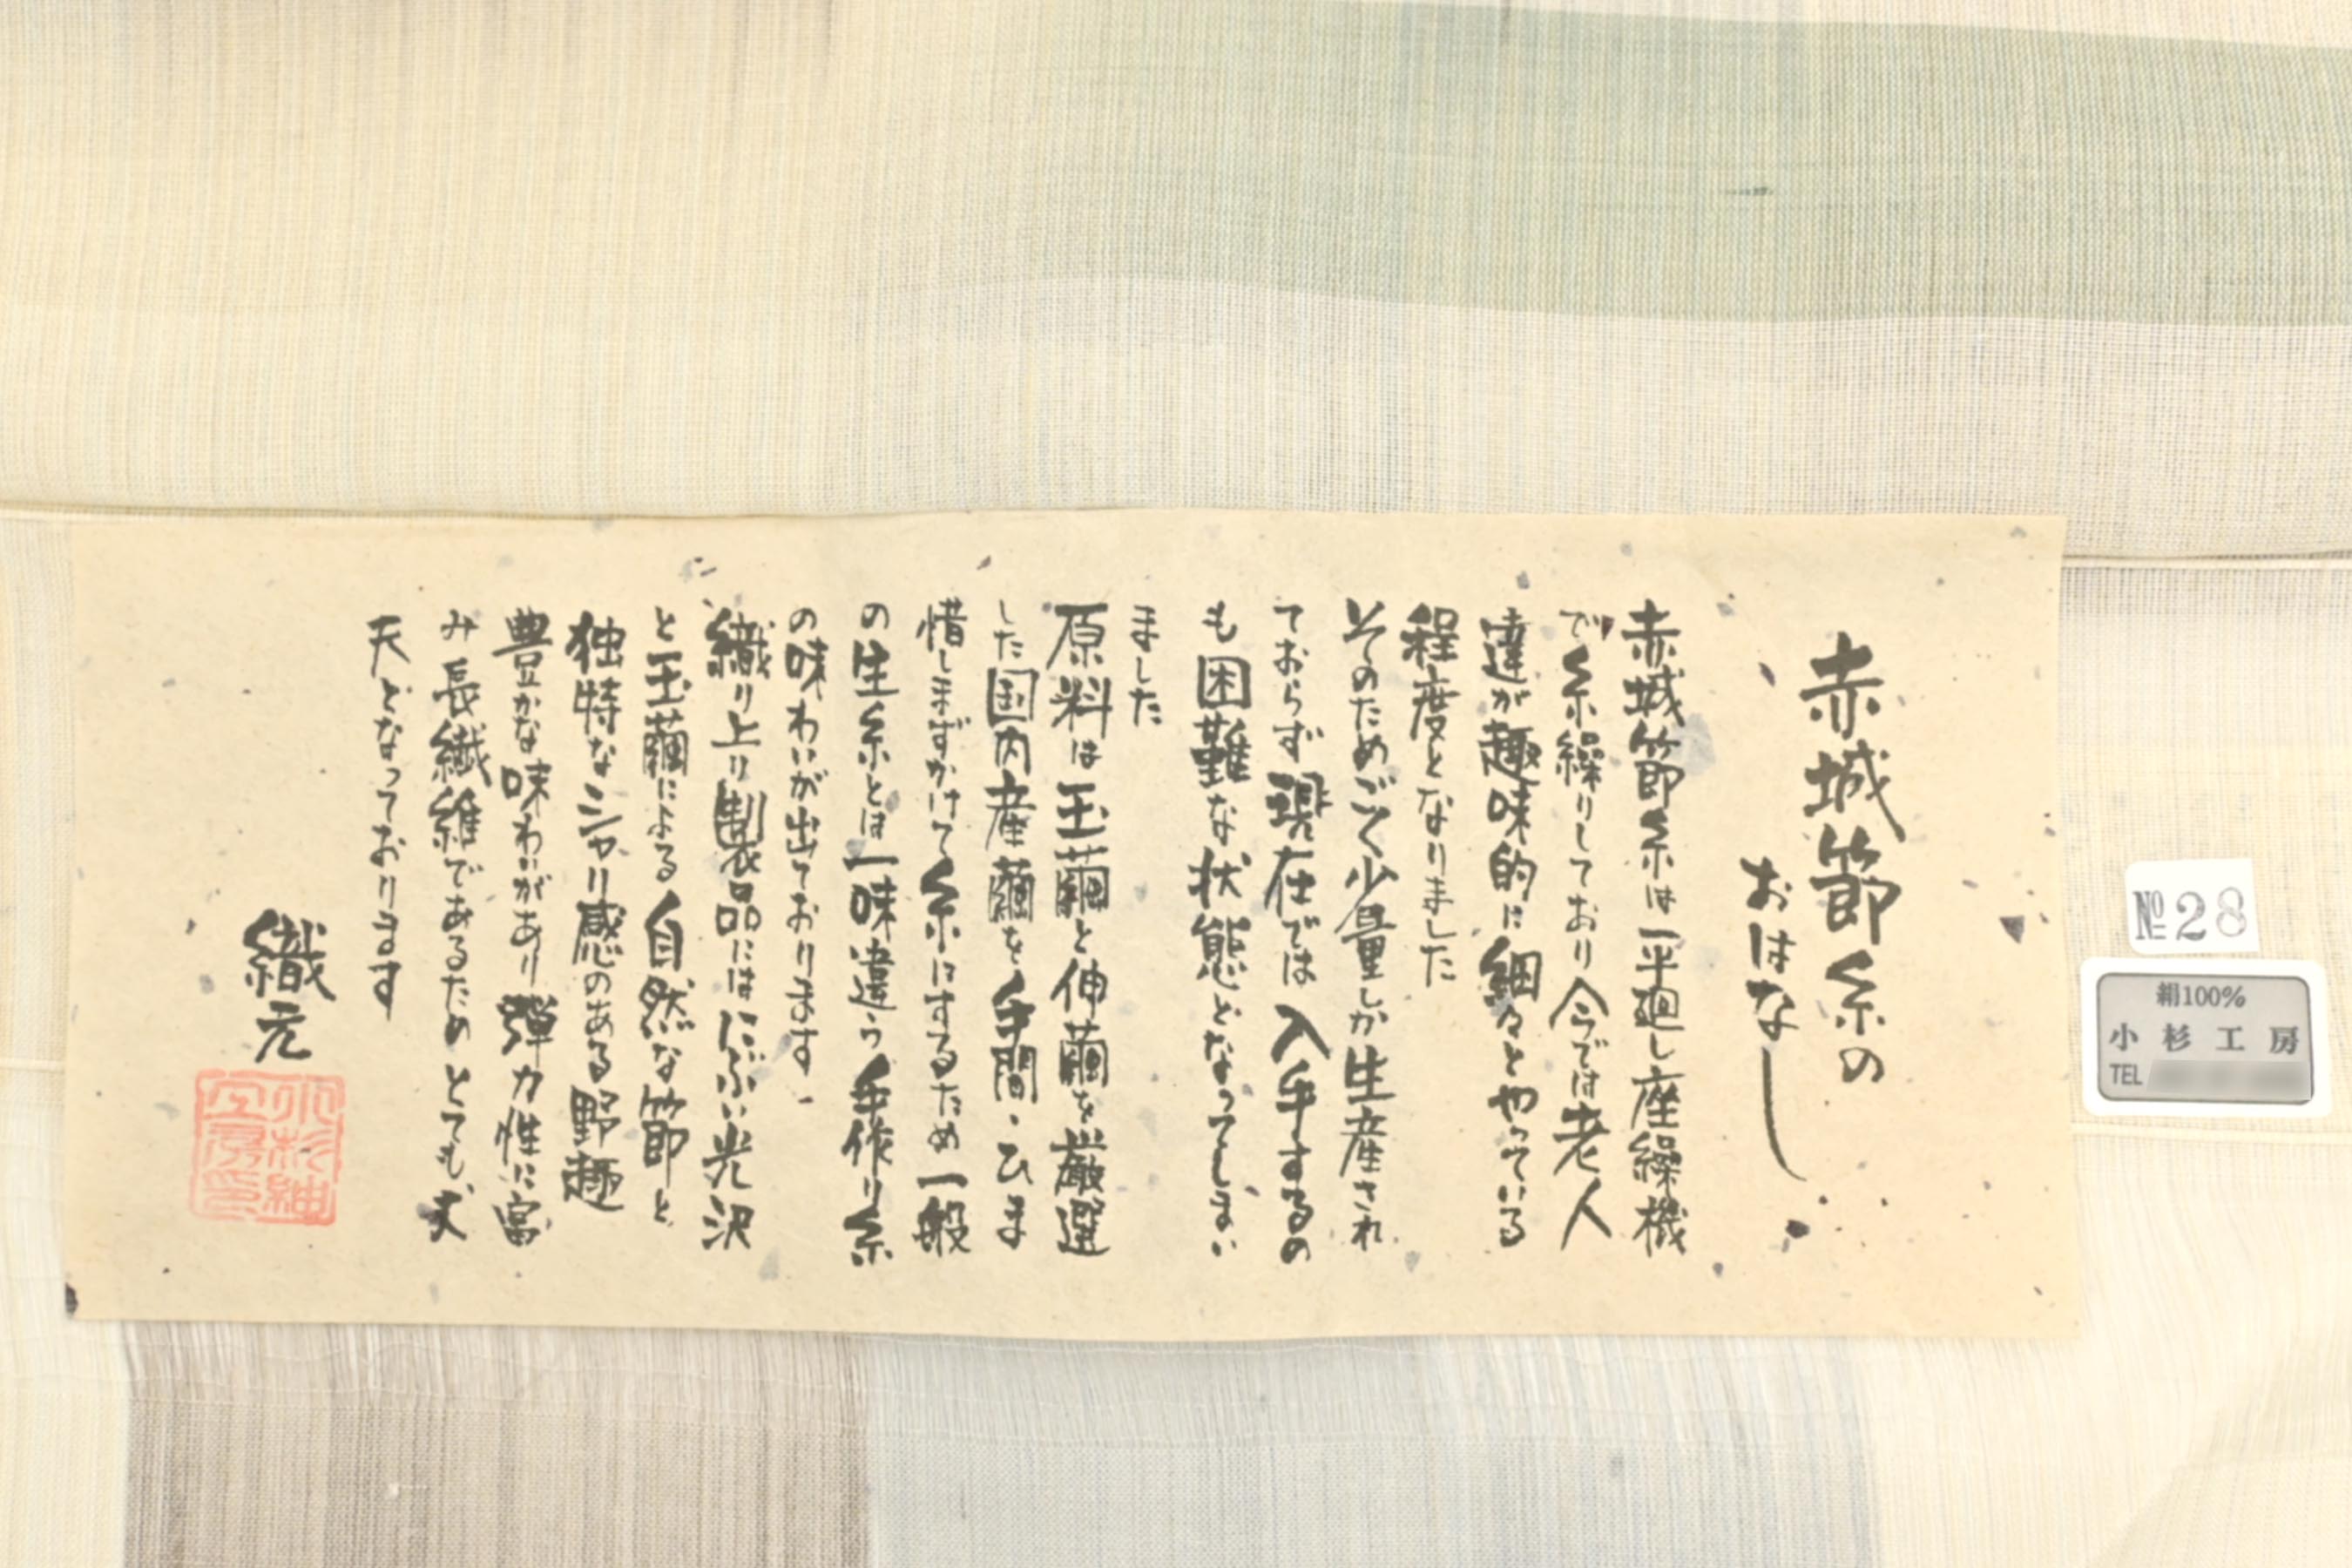 赤城節糸の
おはなし
赤城節糸は一平廻し座繰機
で糸繰りしており今では老人
達が趣味的に細々とやっている
程度となりました
そのためごく少量しか生産され
ておらず現在では入手するの
も困難な状態となってしまい
ました
原料は玉繭と伸繭を厳選
した国内産繭を手間・ひま
惜しまずかけて糸にするため一般
の生糸とは一味違う手作り糸
の味わいが出ております.
織り上り製品にはにぶい光沢
と玉繭による自然な節と
独特なシャリ感のある野趣
豊かな味わいがあり弾力性に富
み長繊維であるためとても丈
夫となっております
織元
小杉紬
工房印
№28
絹100%
小杉工房
TEL